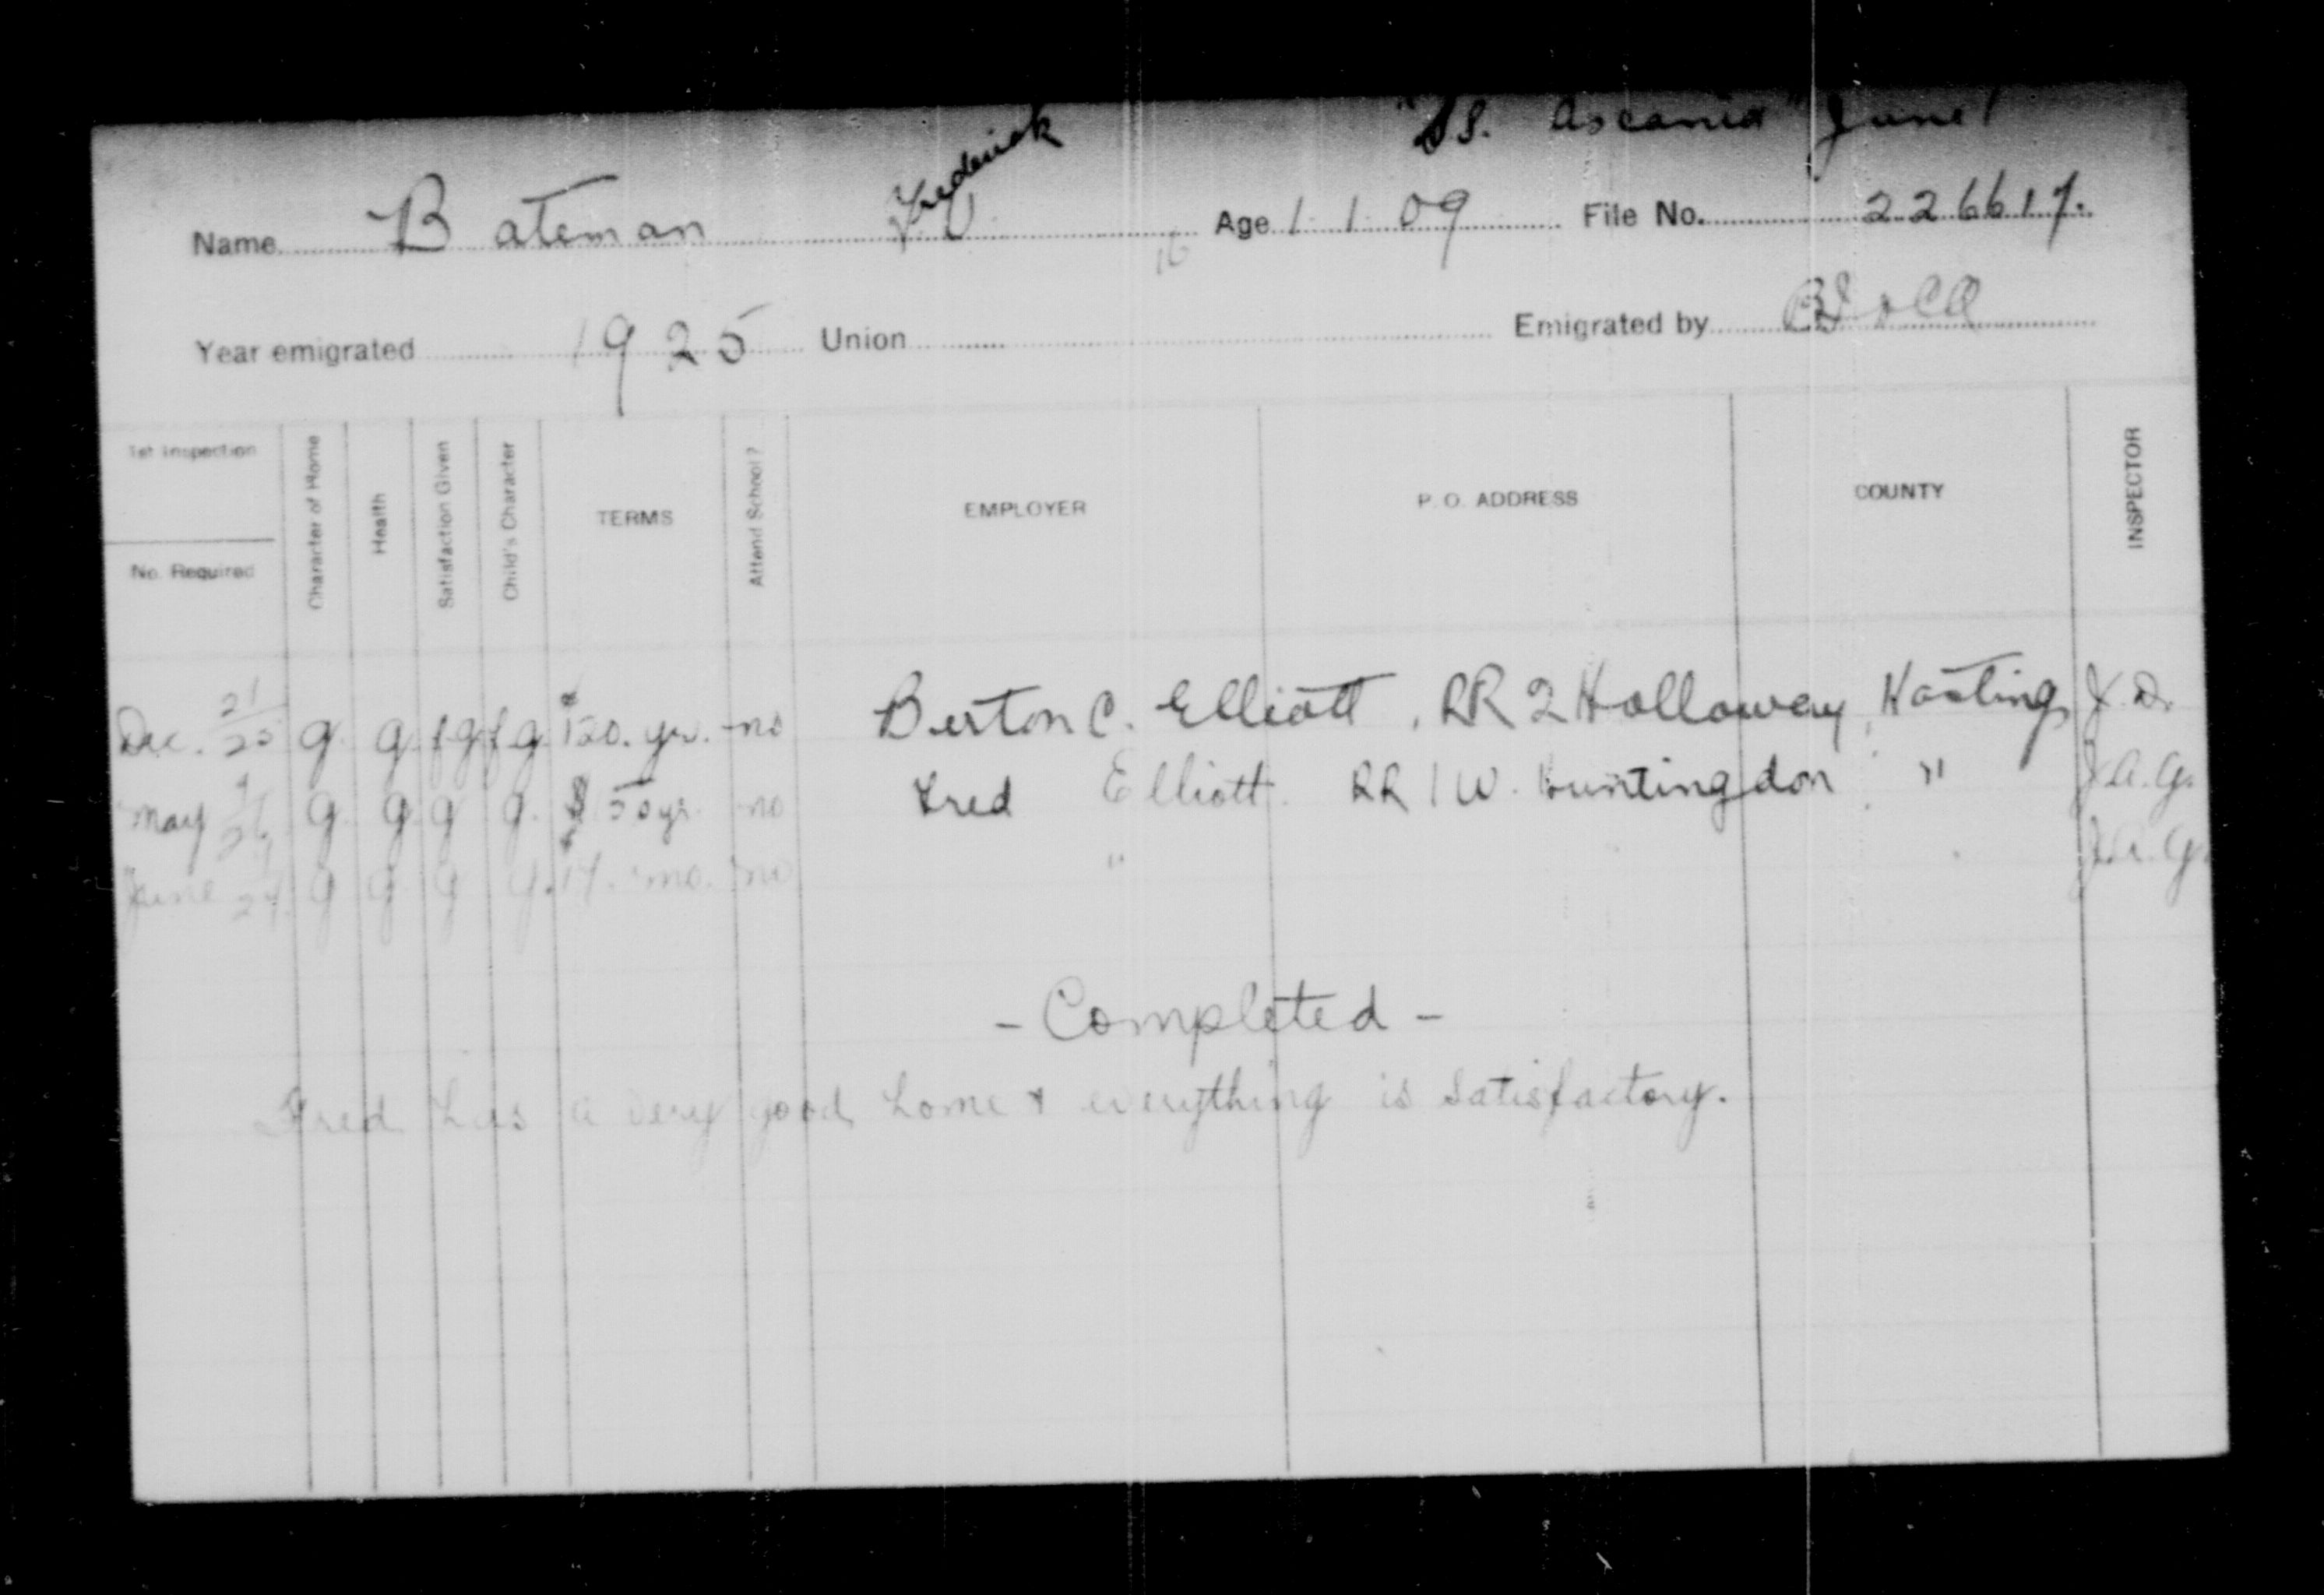 "SS. Ascania" June 1
Name Bateman Frederick Age 1 1 09 File No. 226617.
16
Year emigrated 1925 Union Emigrated by
1st Inspection
No. Required
Character of Home
Health
Satisfaction Given
Child's Character
TERMS
Attend School?
EMPLOYER
P. O. ADDRESS
COUNTY
INSPECTOR
Dec. 21/25 g. g. f.g. f.g. $120. yr. no Berton C. Elliott, RR 2 Holloway, Hastings J.D.
May g. g. g g. $150 yr. no Fred Elliott. RR 1 W. Huntingdon " J.A.G.
June g g. g g. 17. mo. no " J.A.G.
- Completed -
Fred has a very good home & everything is satisfactory.